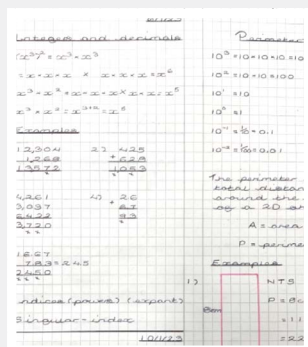 Integers and decimals
(x³)² = x³ × x³
= x × x × x × x × x × x = x⁶
x³ × x² = x × x × x × x × x = x⁵
x³ × x² = x³⁺² = x⁵
Examples
12,304
1,268
13572
2) 425
+ 628
1,053
4,261
3,037
6422
3,720
4) 26
+ 67
93
16.67
7.83 = 24.5
24.50
ndices (powers) (expont)
Singular - index
10/1/23
Perimeter
10³ = 10 × 10 × 10 = 10
10² = 10 × 10 = 100
10¹ = 10
10⁰ = 1
10⁻¹ = 1/10 = 0.1
10⁻² = 1/100 = 0.01
The perimeter
total distan
around the
of a 2D sh
A = area
P = perime
Examples
1)
NTS
8cm
P = 8c
= 11
= 22